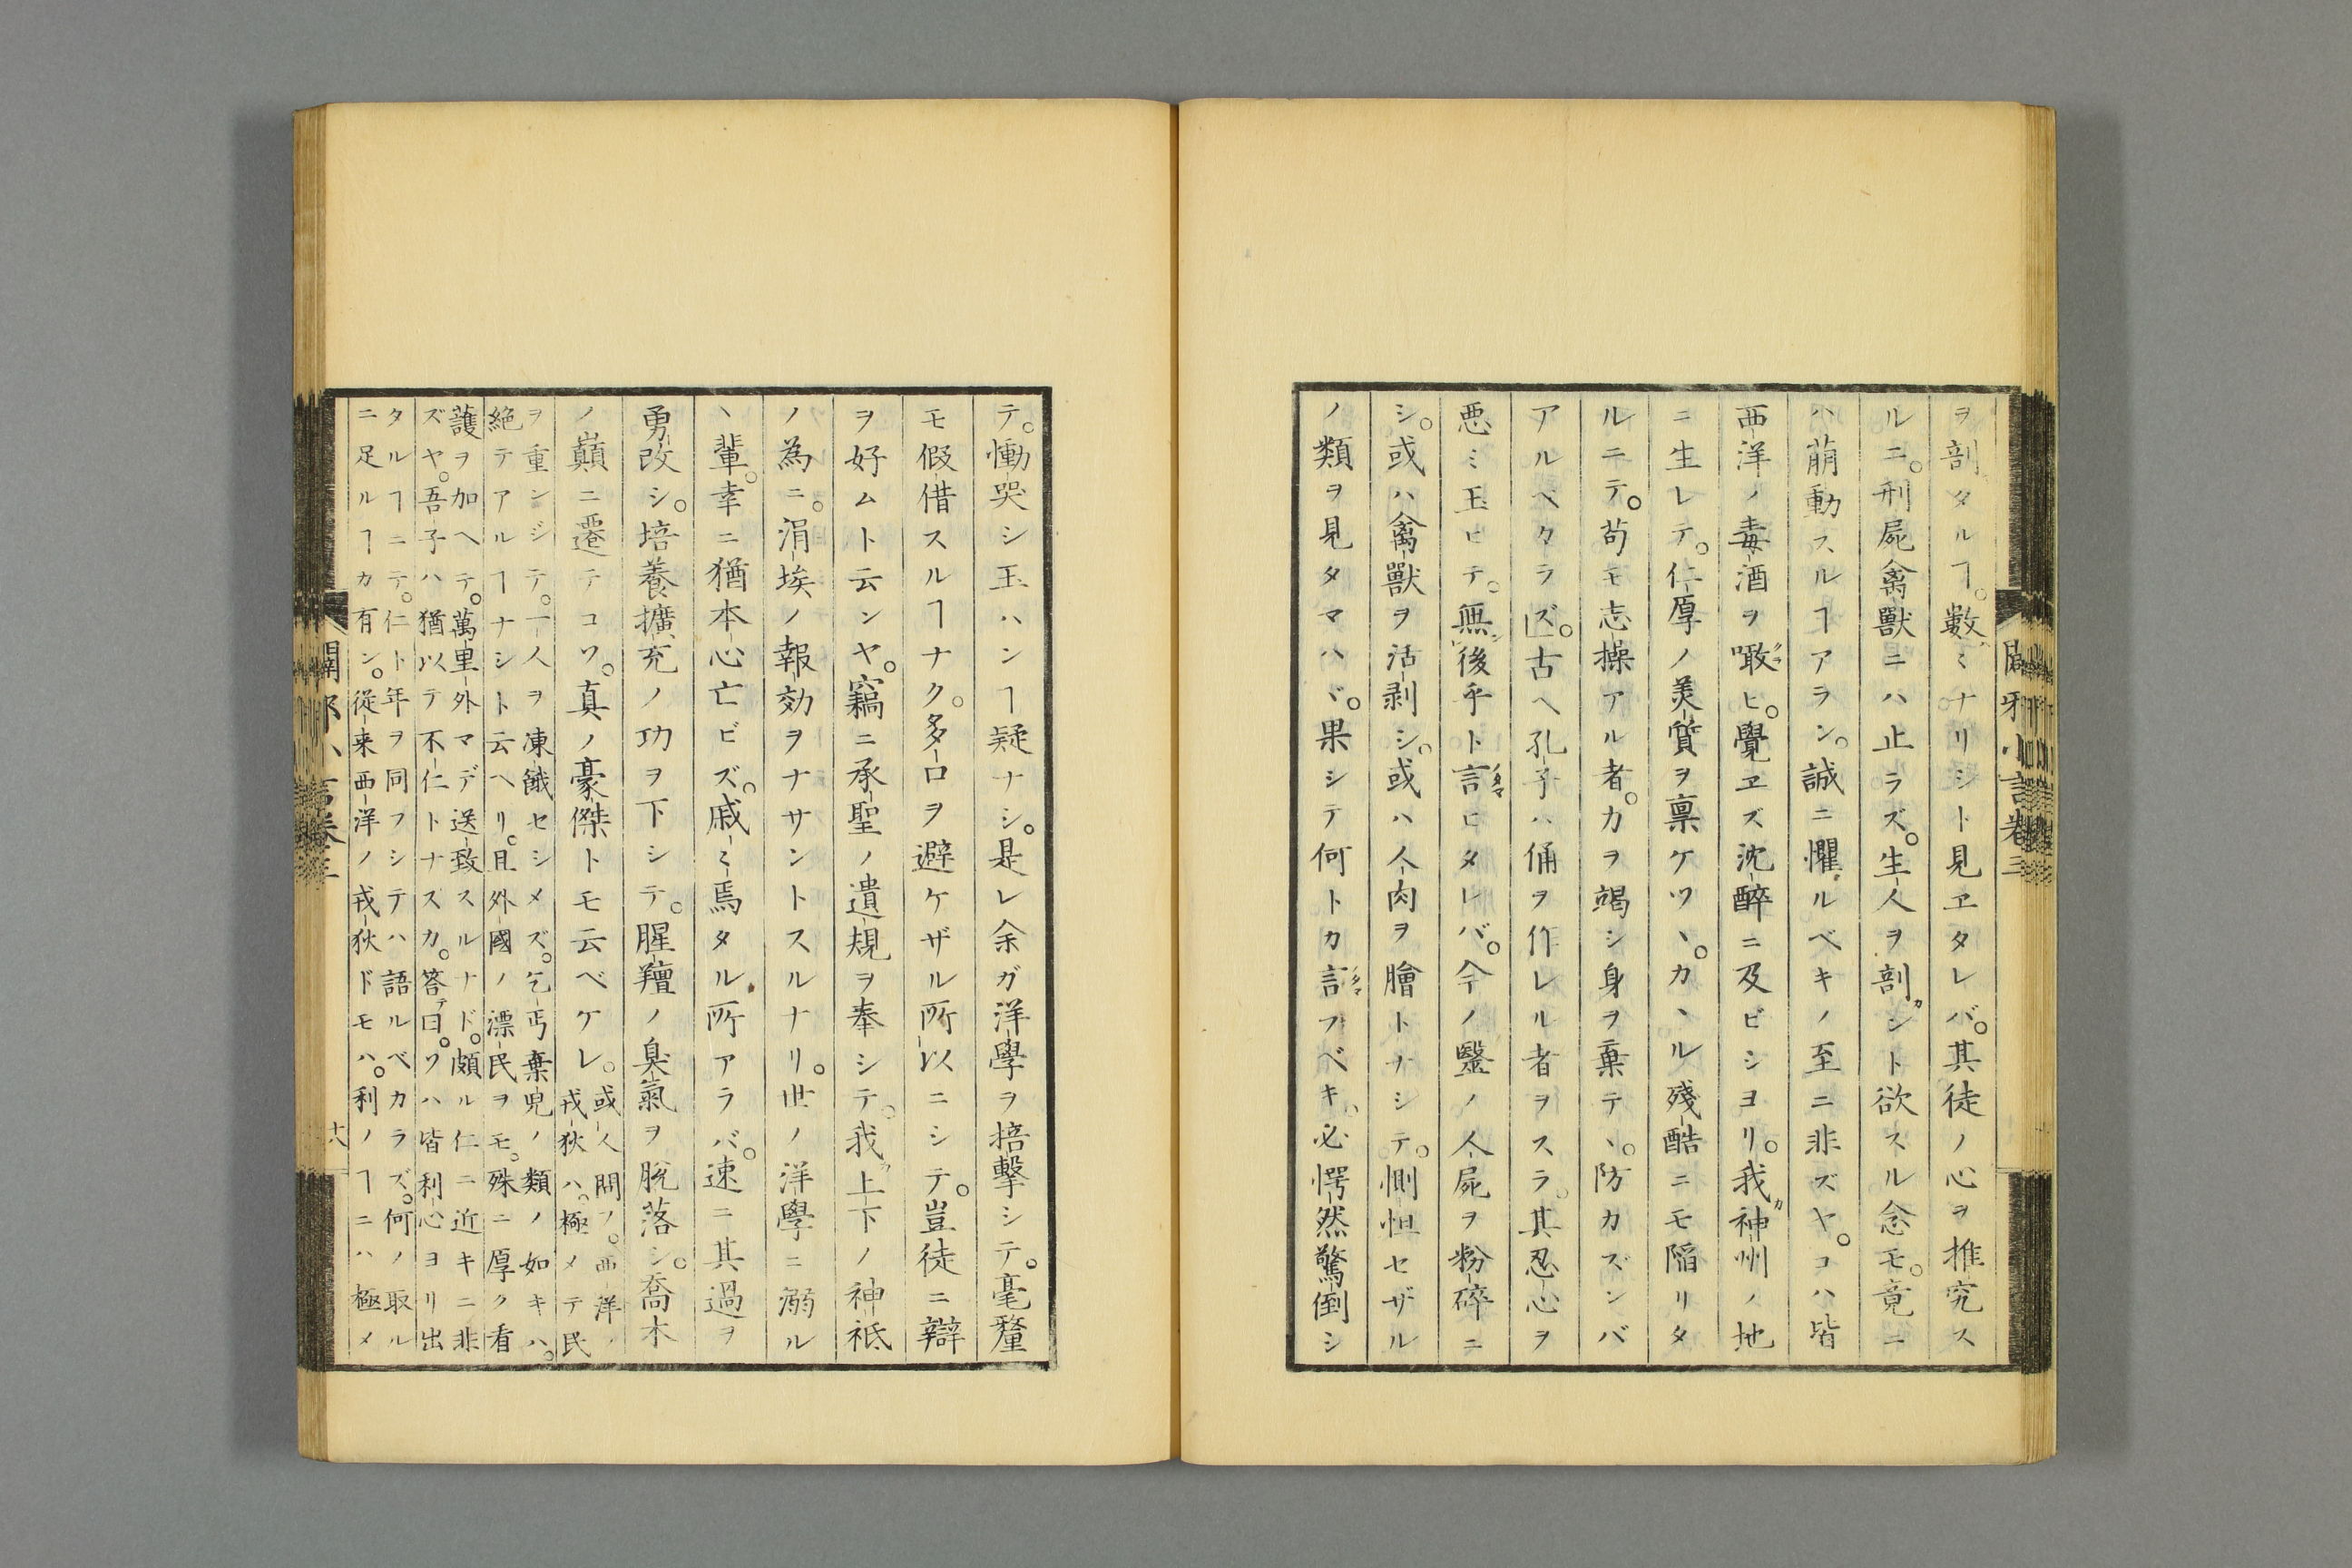 ヲ剖タルヿ。數〻ナリシト見ヱタレバ。其徒ノ心ヲ推究ス
ルニ。刑屍禽獸ニハ止ラズ。生人ヲ剖ント欲スル念モ。竟ニ
ハ萠動スルヿアラン。誠ニ懼ルベキノ至ニ非ズヤ。コハ皆
西洋ノ毒酒ヲ噉ヒ。覺ヱズ沈醉ニ及ビシヨリ。我神州ノ地
ニ生レテ。仁厚ノ美質ヲ稟ケツヽ。カヽル殘酷ニモ陷リタ
ルニテ。苟モ志操アル者。力ヲ竭シ身ヲ棄テヽ。防カズンバ
アルベクラズ。古ヘ孔子ハ俑ヲ作レル者ヲスラ。其忍心ヲ
悪ミ玉ヒテ。無後乎ト言ヒタレバ。今ノ毉ノ人屍ヲ粉碎ニ
シ。或ハ禽獸ヲ活剥シ。或ハ人肉ヲ膾トナシテ。惻怛セザル
ノ類ヲ見タマハヾ。果シテ何トカ言フベキ。必愕然驚倒シ
闢邪小言卷三
テ。慟哭シ玉ハンヿ疑ナシ。是レ余ガ洋學ヲ掊擊シテ。毫釐
モ假借スルヿナク。多口ヲ避ケザル所以ニシテ。豈徒ニ辯
ヲ好ムト云ンヤ。竊ニ承聖ノ遺規ヲ奉シテ。我上下ノ神祇
ノ為ニ。涓埃ノ報効ヲナサントスルナリ。世ノ洋學ニ溺ル
ヽ輩。幸ニ猶本心亡ビズ。戚〻焉タル所アラバ。速ニ其過ヲ
勇改シ。培養擴充ノ功ヲ下シテ。腥羶ノ臭氣ヲ脫落シ。喬木
ノ巓ニ遷テコソ。真ノ豪傑トモ云ベケレ。
或人問フ。西洋ノ
戎狄ハ。極メテ民
ヲ重ンジテ。一人ヲ凍餓セシメズ。乞丐棄兒ノ類ノ如キハ。
絶テアルヿナシト云ヘリ。且外國ノ漂民ヲモ。殊ニ厚ク看
護ヲ加ヘテ。萬里外マデ送致スルナド。頗ル仁ニ近キニ非
ズヤ。吾子ハ猶以テ不仁トナスカ。答テ曰。ソハ皆利心ヨリ出
タルヿニテ。仁ト年ヲ同フシテハ語ルベカラズ。何ノ取ル
ニ足ルヿカ有ン。從来西洋ノ戎狄ドモハ。利ノヿニハ極メ
十八